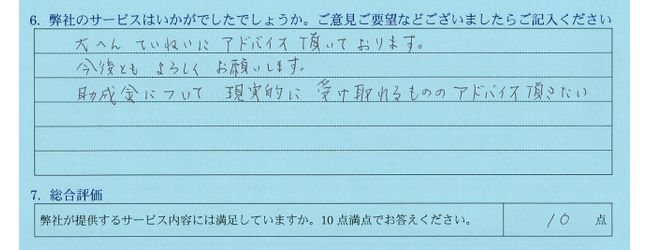 6. 弊社のサービスはいかがでしたでしょうか。ご意見ご要望などございましたらご記入ください
大へん ていねいに アドバイス 頂いて おります。
今後とも よろしく お願いします。
助成金について 現実的に 受け取れるものの アドバイス 頂きたい
7. 総合評価
弊社が提供するサービス内容には満足していますか。10点満点でお答えください。 10 点